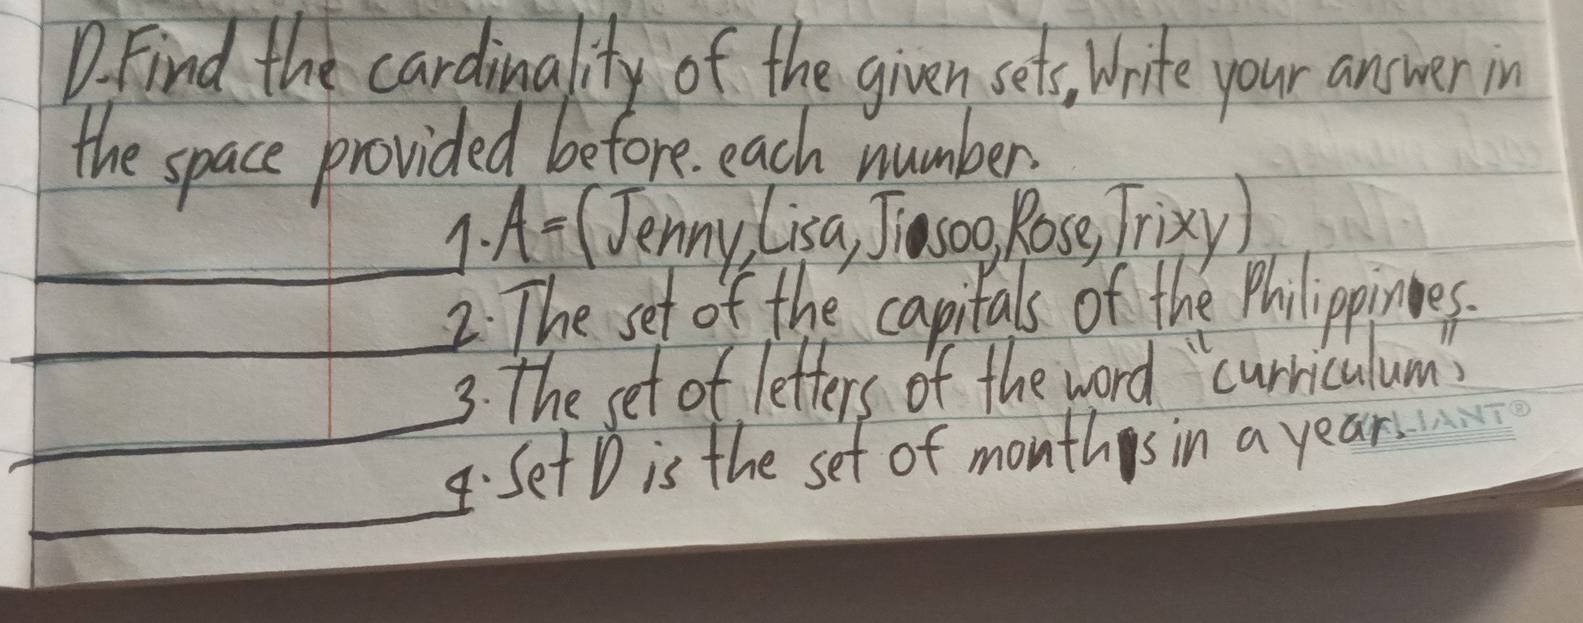 D. Find the cardinality of the given sets, Write your answer in
the space provided before. each number.
1. A = (Jenny, Lisa, Jisoo, Rose, Trixy)
2. The set of the capitals of the Philippines.
3. The set of letters of the word "curriculum",
4. Set D is the set of months in a year.